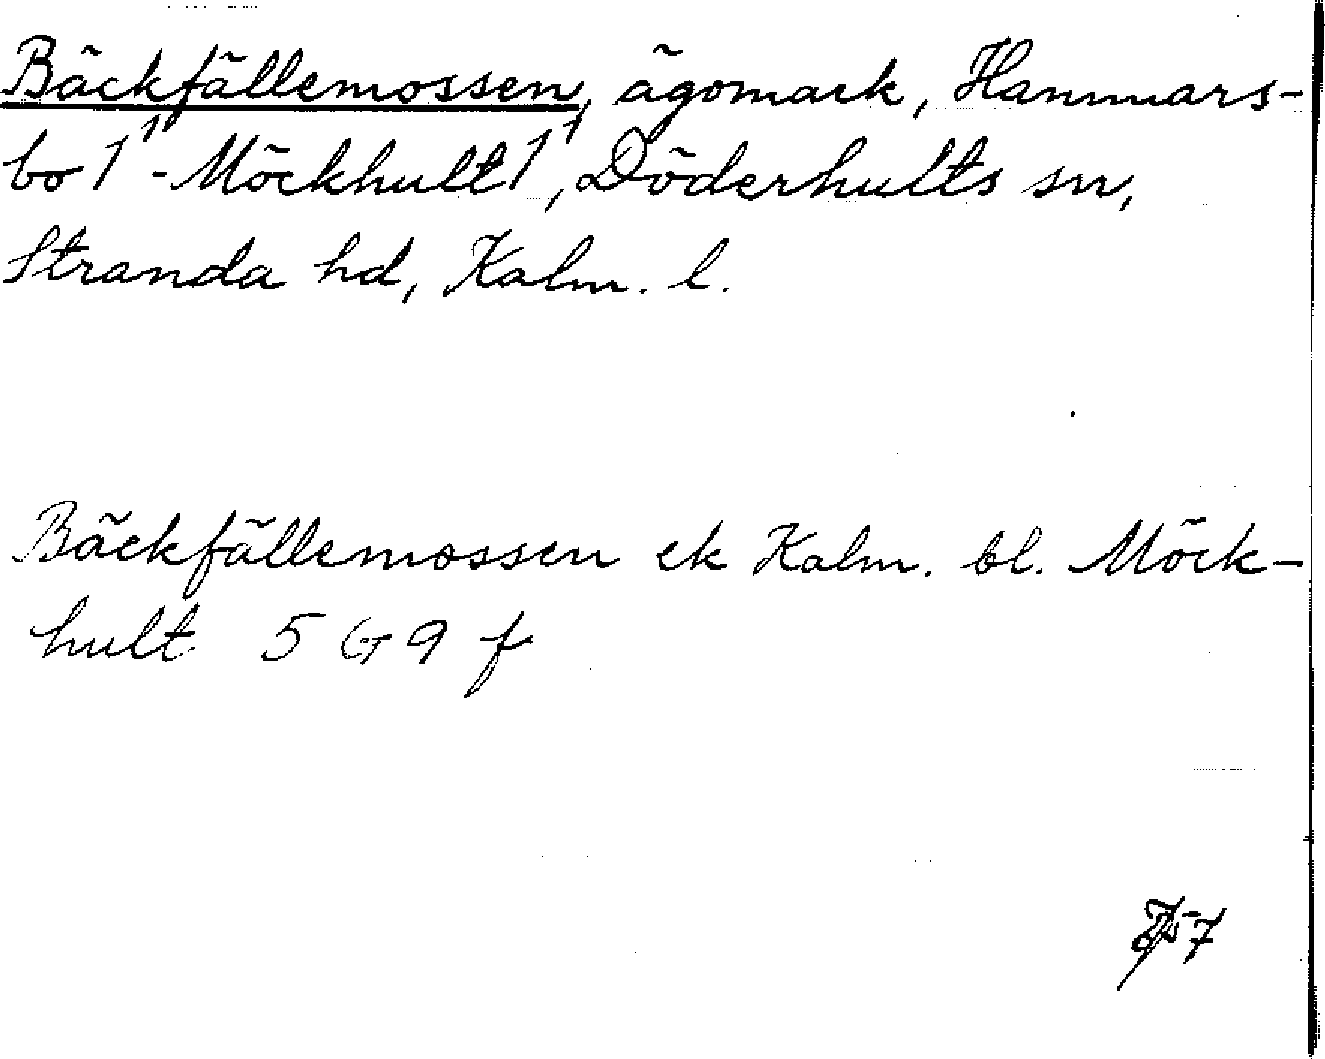 Bäckfällemossen, ägomark, Hammars-
bo 1¹ - Möckhult 1¹, Döderhults sn,
Stranda hd, Kalm. l.
Bäckfällemossen ek Kalm. bl. Möck-
hult 5 G 9 f